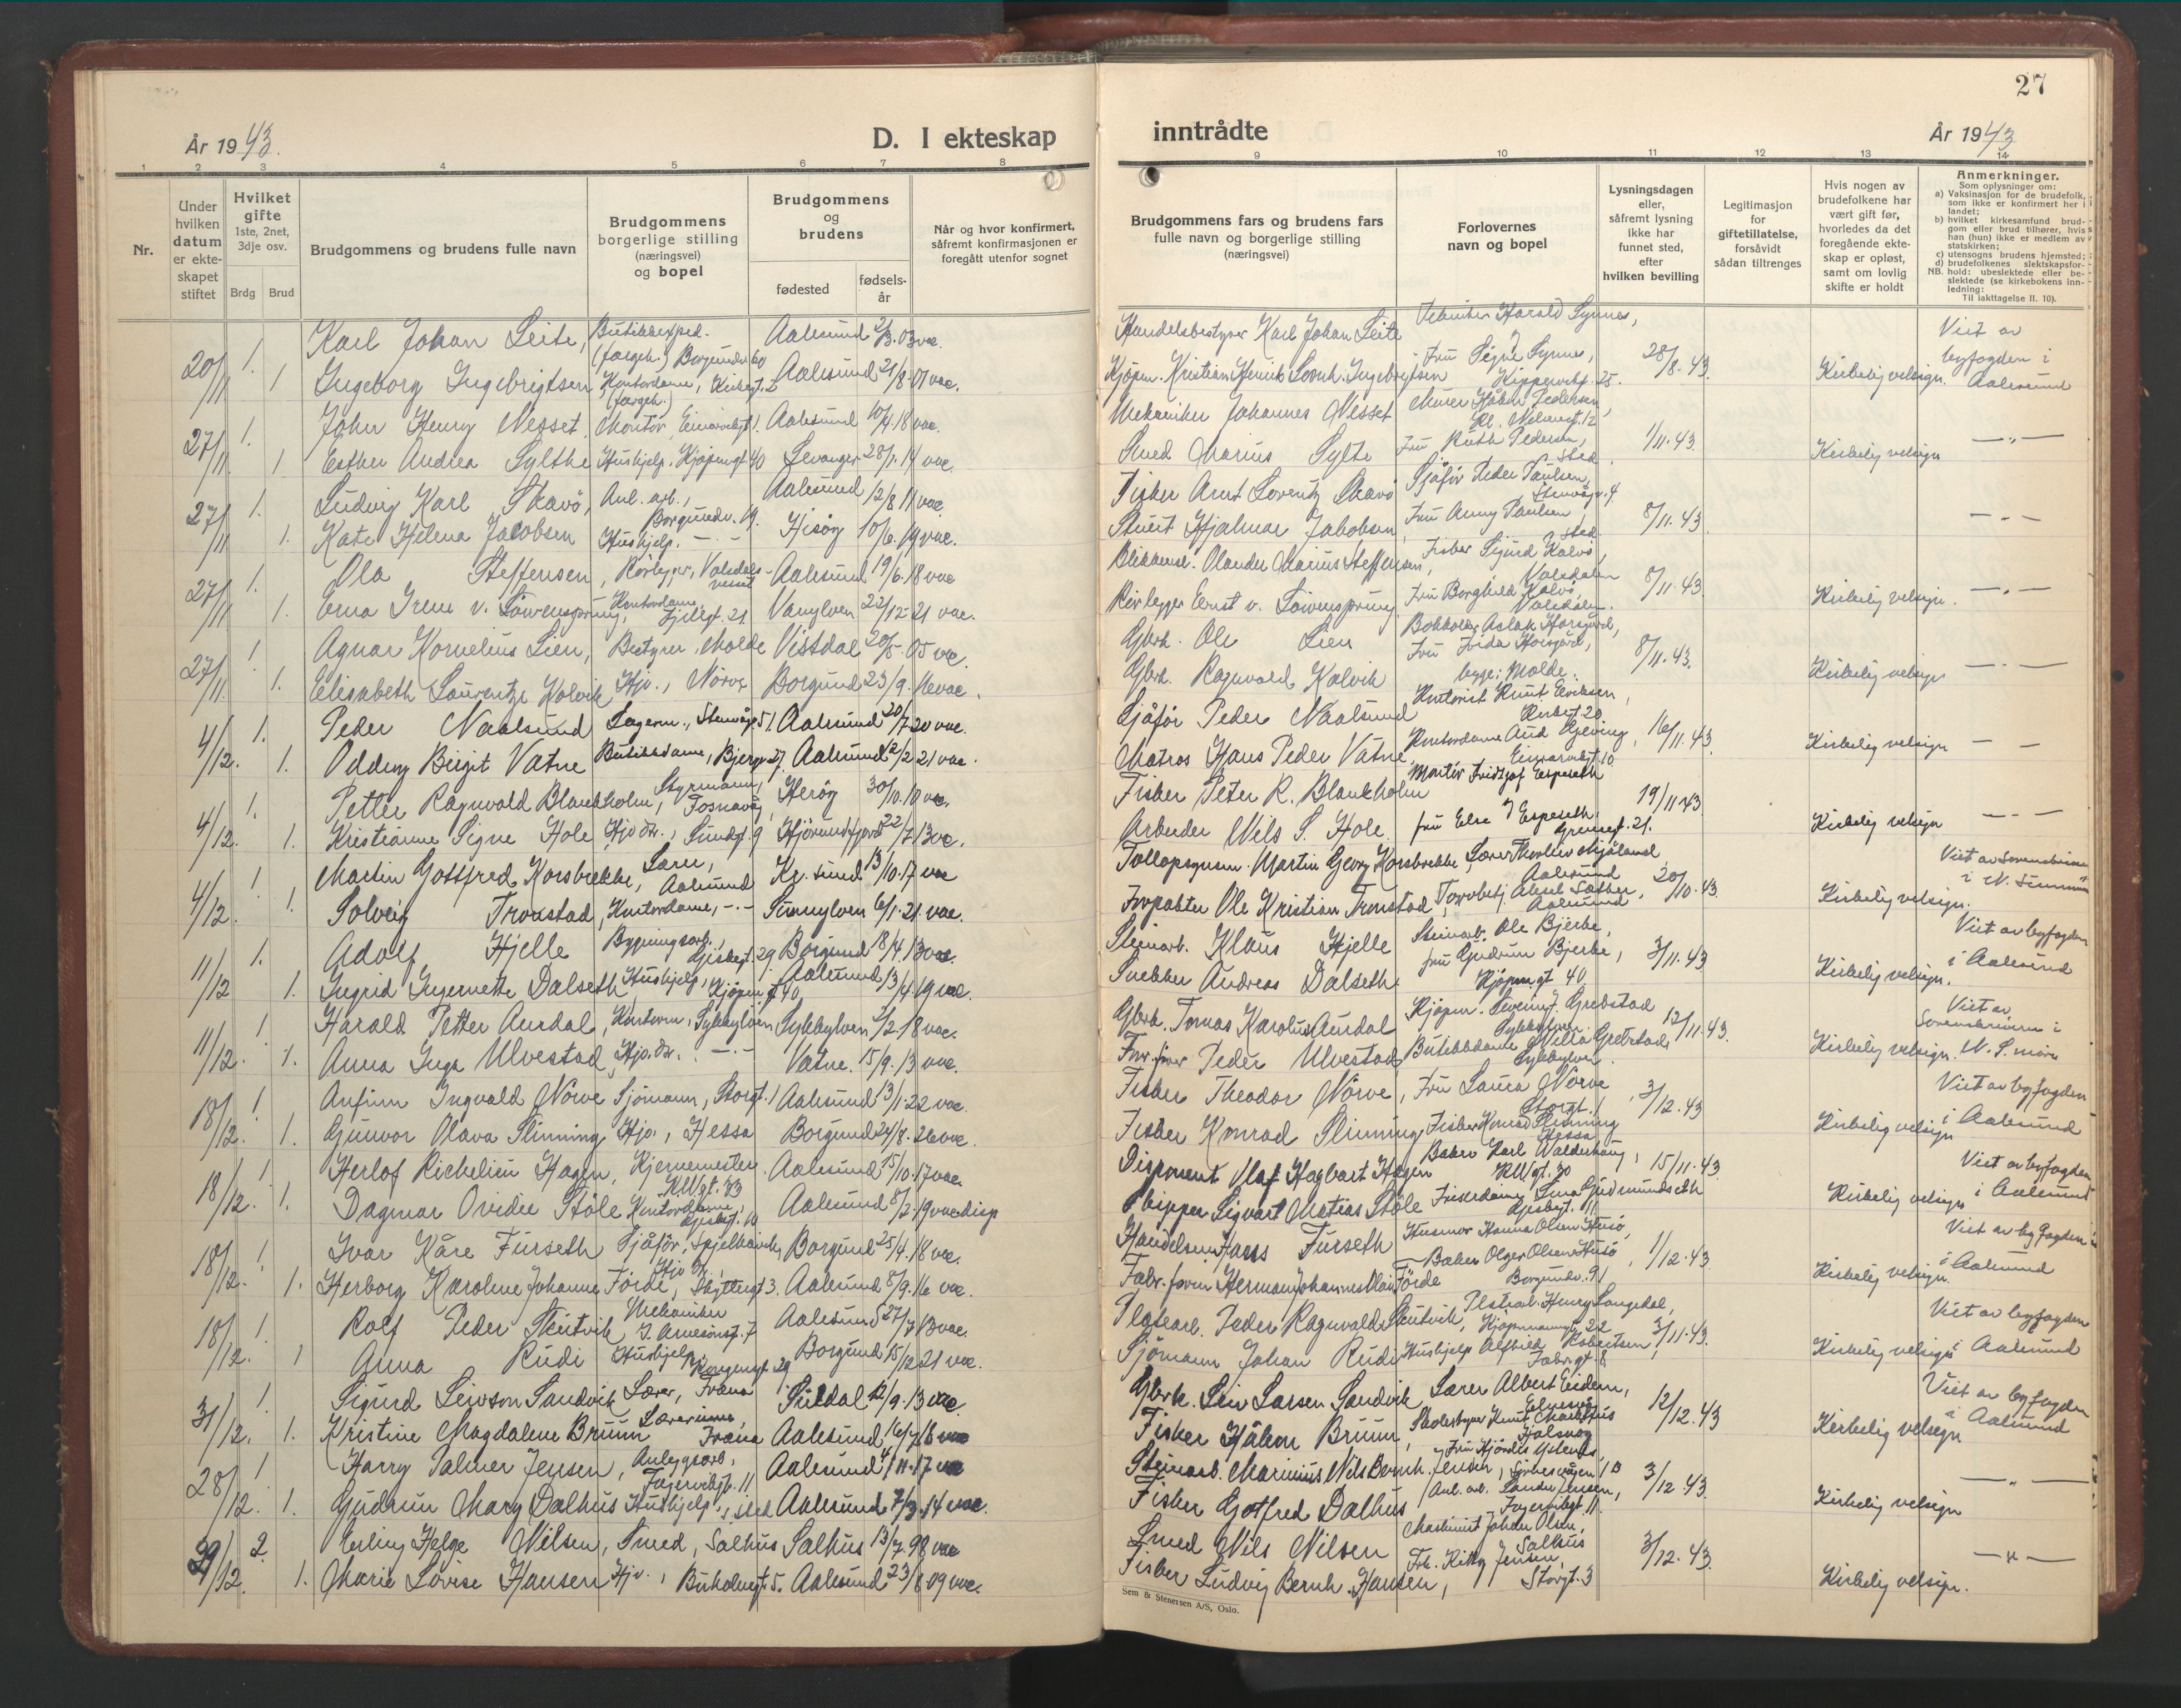 27
År 1943.
D. I ekteskap
inntrådte
År 1943
1 2 3 4 5 6 7 8
9 10 11 12 13 14
Nr.
Under hvilken datum er ekteskapet stiftet
Hvilket gifte 1ste, 2net, 3dje osv.
Brdg Brud
Brudgommens og brudens fulle navn
Brudgommens borgerlige stilling (næringsvei) og bopel
Brudgommens og brudens
fødested
fødselsår
Når og hvor konfirmert, såfremt konfirmasjonen er foregått utenfor sognet
Brudgommens fars og brudens fars fulle navn og borgerlige stilling (næringsvei)
Forlovernes navn og bopel
Lysningsdagen eller, såfremt lysning ikke har funnet sted, efter hvilken bevilling
Legitimasjon for giftetillatelse, forsåvidt sådan tiltrenges
Hvis nogen av brudefolkene har vært gift før, hvorledes da det foregående ekteskap er opløst, samt om lovlig skifte er holdt
Anmerkninger.
Som oplysninger om:
a) Vaksinasjon for de brudefolk, som ikke er konfirmert her i landet;
b) hvilket kirkesamfund brudgom eller brud tilhører, hvis han (hun) ikke er medlem av statskirken;
c) utensogns brudens hjemsted;
d) brudefolkenes slektskapsforhold: ubeslektede eller beslektede (se kirkebokens innledning:
NB.
Til iakttagelse II. 10).
20/11 1. Karl Johan Leite, Butikkexped. (færgeh.) Borgundv. 60 Aalesund 2/3.03 vac. Handelsbestyrer Karl Johan Leite Harald Synnes,
1 Ingeborg Ingebrigtsen Kontordame, Kirkegt. 2 (færgeh.) Aalesund 21/8.07 vac. Kjøpm. Kristian Henrik Bernh. Ingebrigtsen Fru Signe Synnes, 28/8.43. Kirkelig velsign. Viet av byfogden i Aalesund
27/11 1. John Henry Nesset, Montør, Aalesund 10/4.18 vac. Mekaniker Johannes Nesset Murer Håkon Pedersen,
1 Esther Andrea Sylthe Hushjelp, Kjøpmgt 40 Levanger 28/1.14 vac. Smed Marius Sylte Fru Ruth Pedersen, sted. 1/11.43. Kirkelig velsign — " —
27/11 1. Ludvig Karl Skavø, Anl. arb., Borgundv. 19. Aalesund 12/8 11 vac. Fisker Arnt Lorentz Skavø Sjåfør Peder Paulsen, Stenvågv. 4
1. Kate Helena Jacobsen Hushjelp. — " — Hisøy 10/6.19 vac. Stuert Hjalmar Jakobsen, Fru Anny Paulsen sted. 8/11.43. — " —
27/11 1. Ola Steffensen, Rørlegger, Volsdalsvegen Aalesund 19/6.18 vac Blikkensl. Olander Marius Steffensen, Fisker Sigurd Kalvø, Volsdalen
1. Erna Irene v. Løwensprung, Kontordame, Fjellgt. 21. Vanylven 22/12-21 vac. Rørlegger Ernst v. Löwensprung, Fru Borghild Kalvø, Volsdalen. 8/11.43. Kirkelig velsign. — " —
27/11. 1. Agnar Kornelius Lien, Bestyrer, Molde Vistdal 20/5-05 vac. Gbrk. Ole Lien Bokholder Aslak Horsgård,
1. Elisabeth Laurentze Kolvik Hjv., Nørve Borgund 23/9.16 vac. Gbrk. Ragnvald Kolvik Fru Frida Horsgård, begge; Molde. 8/11.43. Kirkelig velsign — " —
4/12. 1. Peder Naalsund Lagerm., Stenvågv. 51. Aalesund 20/7 20 vac. Sjåfør Peder Naalsund Kontorist Knut Eriksen,
1. Oddny Birgit Vatne Butikkdame, Bjergv. 27 Aalesund 12/2 21 vac. Matros Hans Peder Vatne, Kontordame Aud Gjeving, 16/11.43. Kirkelig velsign — —
4/12. 1. Petter Ragnvald Blankholm, Styrmann, Fosnavåg, Herøy 30/10.10 vac. Fisker Peter R. Blankholm Montør Fridtjof Espeseth
1. Kristianne Signe Hole Hjv. dr., Sundgt. 9 Hjørundfjord 22/7.13 vac. Arbeider Nils S. Hole. fru Else Espeseth, Grensegt. 21. 19/11 43. Kirkelig velsign — " —
4/12. 1. Martin Gottfred Korsbrekke, Lærer, Aalesund Kr. sund 13/10.17 vac Tollopsynsm. Martin Georg Korsbrekke, Lærer Thorleiv Mjåland, Aalesund Viet av Sorenskriveren i N. Sunnmøre
1. Solveig Tronstad, Kontordame, — " — Sunnylven 6/1.21 vac. Forpakter Ole Kristian Tronstad, Sæther, Aalesund 20/10.43. Kirkelig velsign.
11/12 1. Adolf Hjelle Bygningsarb., Giskegt. 29 Borgund 18/4.13 vac. Steinarb. Klaus Hjelle Steinarb. Ole Bjerke, Viet av byfogden i Aalesund
1. Ingrid Ingernette Dalseth, Hushjelp, Kjøpm. gt 40 Aalesund 13/4.19 vac. Snekker Andreas Dalseth fru Gudrun Bjerke, Kjøpm. gt 40 3/11.43 Kirkelig velsign.
11/12. 1. Harald Petter Aurdal, Kontorm., Sykkylven Sykkylven 2/2.18 vac. Gbrk. Tomas Karolius Aurdal Kjøpm. Grebstad Sykkylven Viet av Sorenskriveren i
1. Anna Inga Ulvestad, Hjv. dr. — " — Vatne. 15/9.13 vac. Peder Ulvestad Butikkdame Villa Grebstad, Sykkylven. 12/11.43. Kirkelig velsign. N. S. møre
18/12. 1. Anfinn Ingvald Nørve Sjømann, Storgt. 1 Aalesund 13/1-22 vac. Fisker Theodor Nørve, Fru Laura Nørve Storgt. 1 Viet av byfogden
1. Gunvor Olava Slinning Hjv., Hessa Borgund 24/8.26 vac. Fisker Konrad Slinning, Fisker Konrad Slinning Hessa 3/12.43 Kirkelig velsign i Aalesund
18/12. 1. Herlof Richelieu Hagen, Kjernemester. K.W.gt. 33 Aalesund 15/10.17 vac. Disponent Olaf Hagbart Hagen Baker Karl Walderhaug, K.W.gt. 30 15/11.43. Viet av byfogden
1. Dagmar Ovidie Støle Kontordame, Giskegt. 10 Aalesund 8/2.19 vac disp Skipper Sigvart Matias Støle Frisørdame Gudmundseth Kirkelig velsign i Aalesund
18/12. 1. Ivar Kåre Furseth Sjåfør, Spjelkavik, Borgund 25/4.18 vac. Handelsm. Hans Furseth Husmor Hanna Olsen Husø, Viet av byfogden
1. Herborg Karoline Johanne Førde, Hjv. dr., Skyttergt 3. Aalesund 8/9.16 vac. Fabr. form. Herman Johannes Førde Baker Olger Olsen Husø, Borgundv. 91 1/12.43. Kirkelig velsign. i Aalesund
18/12. 1. Rolf Peder Skutvik Mekaniker J. Arnesonsgt. 7 Aalesund 27/7 13 vac. Platearb. Peder Ragnvald Skutvik, Platearb. Henry Langedal, Kjøpmannsgt. 22 Viet av byfogden
1 Anna Rudi Hushjelp, Kongensgt. 29 Borgund 15/12 21 vac. Sjømann Johan Rudi Hushjelp Alfhild Robertsen, 3/11.43. Kirkelig velsign i Aalesund
31/12. 1. Sigurd Leivson Sandvik Lærer, Fræna Suldal 12/9.13 vac. Gbrk. Leiv Larsen Sandvik Lærer Albert Eidem, Viet av byfogden
1. Kristine Magdalene Bruun Lærerinne, Fræna Aalesund 16/7.18 vac Fisker Håkon Bruun, Skolestyrer Knut 12/12.43 Kirkelig velsign i Aalesund
28/12. 1 Harry Palmer Jensen, Anleggsarb., Fagervikgt. 11 Aalesund 4/11.17 vac Steinarb. Marinius Nils Bernh. Jensen, Fru Hjørdis
1. Gudrun Marg Dalhus Hushjelp, sted Aalesund 7/3.14 vac. Fisker Gotfred Dalhus Anl. arb. Sander Jensen, Fagervikgt. 11. 3/12.43. Kirkelig velsign — " —
29/12. 2 Erling Helge Nilsen, Smed, Salhus Salhus 13/7.98 vac Smed Nils Nilsen Maskinist Johan Olsen, Salhus
1. Marie Lovise Hansen Hjv., Buholmgt. 5. Aalesund 23/8 09 vac. Fisker Ludvig Bernh. Hansen, Frk. Kitty Jensen, Storgt. 3 3/12.43. Kirkelig velsign. — " —
Sem & Stenersen A/S, Oslo.